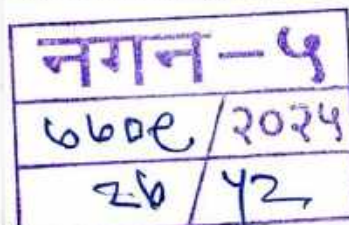 नगन-५
७७०९/२०२५
२७/५२